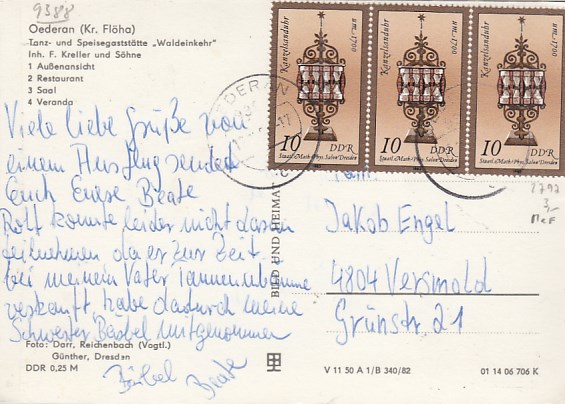 9388
Oederan (Kr. Flöha)
Tanz- und Speisegaststätte „Waldeinkehr"
Inh. F. Kreller und Söhne
1 Außenansicht
2 Restaurant
3 Saal
4 Veranda
Viele liebe Grüße von
einem Ausflug sendet
Euch Eure Beate
Rolf konnte leider nicht daran
teilnehmen da er zur Zeit
bei meinem Vater Tannenbäume
verkauft, habe dadurch meine
Schwester Bärbel mitgenommen
Foto: Darr, Reichenbach (Vogtl.)
Günther, Dresden
DDR 0,25 M
Bärbel
Beate
BILD UND HEIMAT
OEDERAN
Kanzelsanduhr
um 1700
10 DDR
Staatl. Math.-Phys. Salon Dresden
Kanzelsanduhr
um 1700
10 DDR
Staatl. Math.-Phys. Salon Dresden
Kanzelsanduhr
um 1700
10 DDR
Staatl. Math.-Phys. Salon Dresden
2792
3,-
MeF
Jakob Engel
4804 Versmold
Grünstr. 21
V 11 50 A 1/B 340/82
01 14 06 706 K